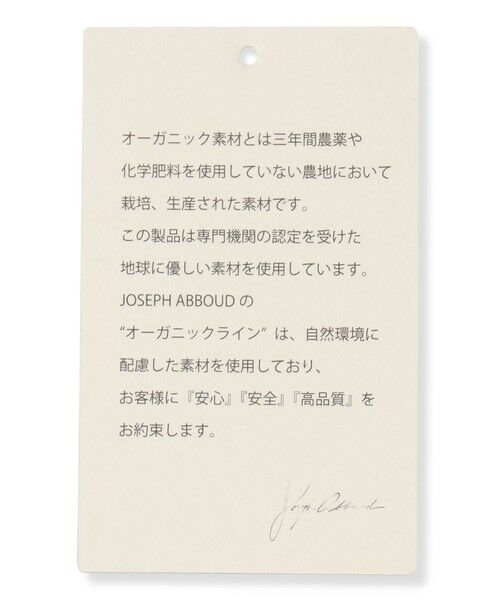 オーガニック素材とは三年間農薬や
化学肥料を使用していない農地において
栽培、生産された素材です。
この製品は専門機関の認定を受けた
地球に優しい素材を使用しています。
JOSEPH ABBOUD の
“オーガニックライン” は、自然環境に
配慮した素材を使用しており、
お客様に『安心』『安全』『高品質』を
お約束します。
Joseph Abboud